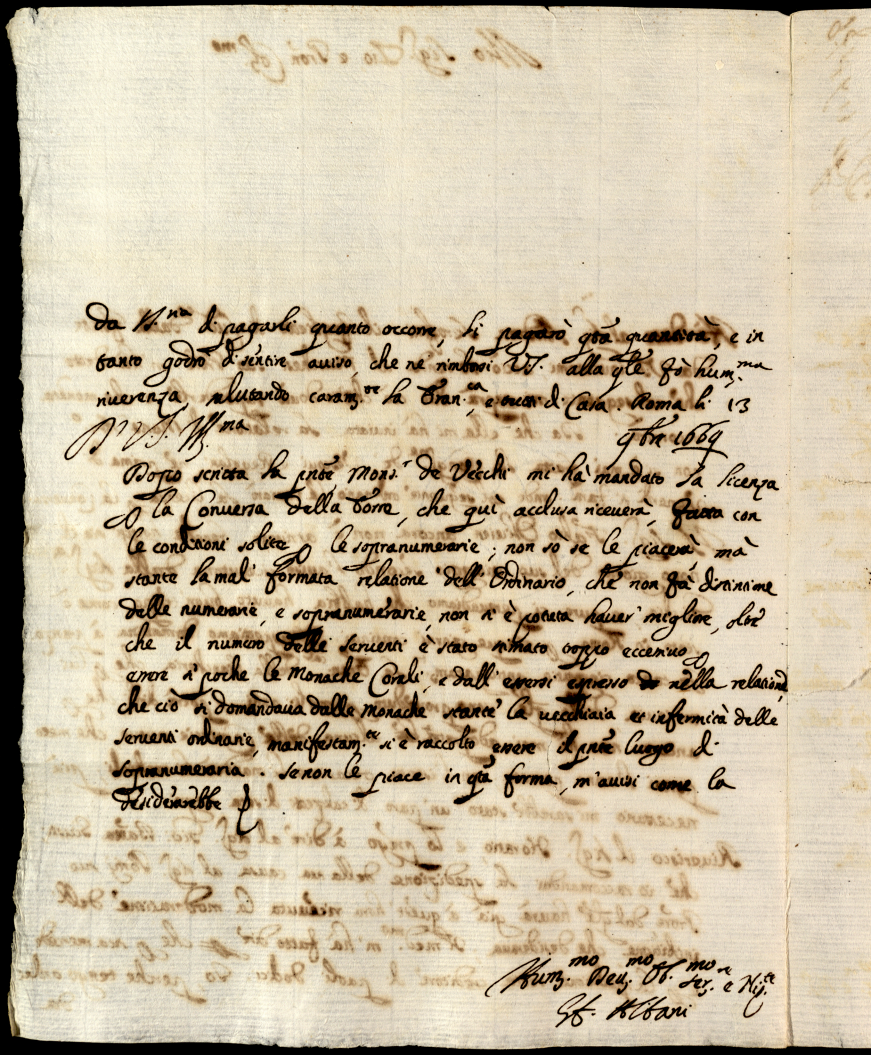 da N.na di pagarli quanto occorre, li pagarò qta quantità, e in
tanto godrò di sentire auiso, che ne rimborsi VS. alla qle fò hum.ma
riuerenza, salutando caram.te la Fran.ca, e tutti di Casa. Roma li 13
Di V.S. Ill.ma 9bre 1669
Dopo scritta la pnte Mons.r de Vecchi mi hà mandato la licenza
p la Conuersa della Torre, che quì acclusa riceuerà, fatta con
le conditioni solite p le sopranumerarie; non sò se le piacerà, mà
stante la mal' formata relatione dell' Ordinario, che non fà distintione
delle numerarie, e sopranumerarie, non si è potuta hauer' migliore, oltre
che il numero delle seruenti è stato stimato troppo eccessiuo p
essere sì poche le Monache Corali, e dall' essersi espresso nella relatione,
che ciò si domandaua dalle Monache stante la uecchiaia et infermità delle
seruenti ordinarie, manifestam.te si è raccolto essere il pnte luogo di
sopranumeraria. Se non le piace in qta forma, m'auisi come la
desiderarebbe
Hum.mo Deu.mo Obl.mo Ser.re e Nip.te
Albani